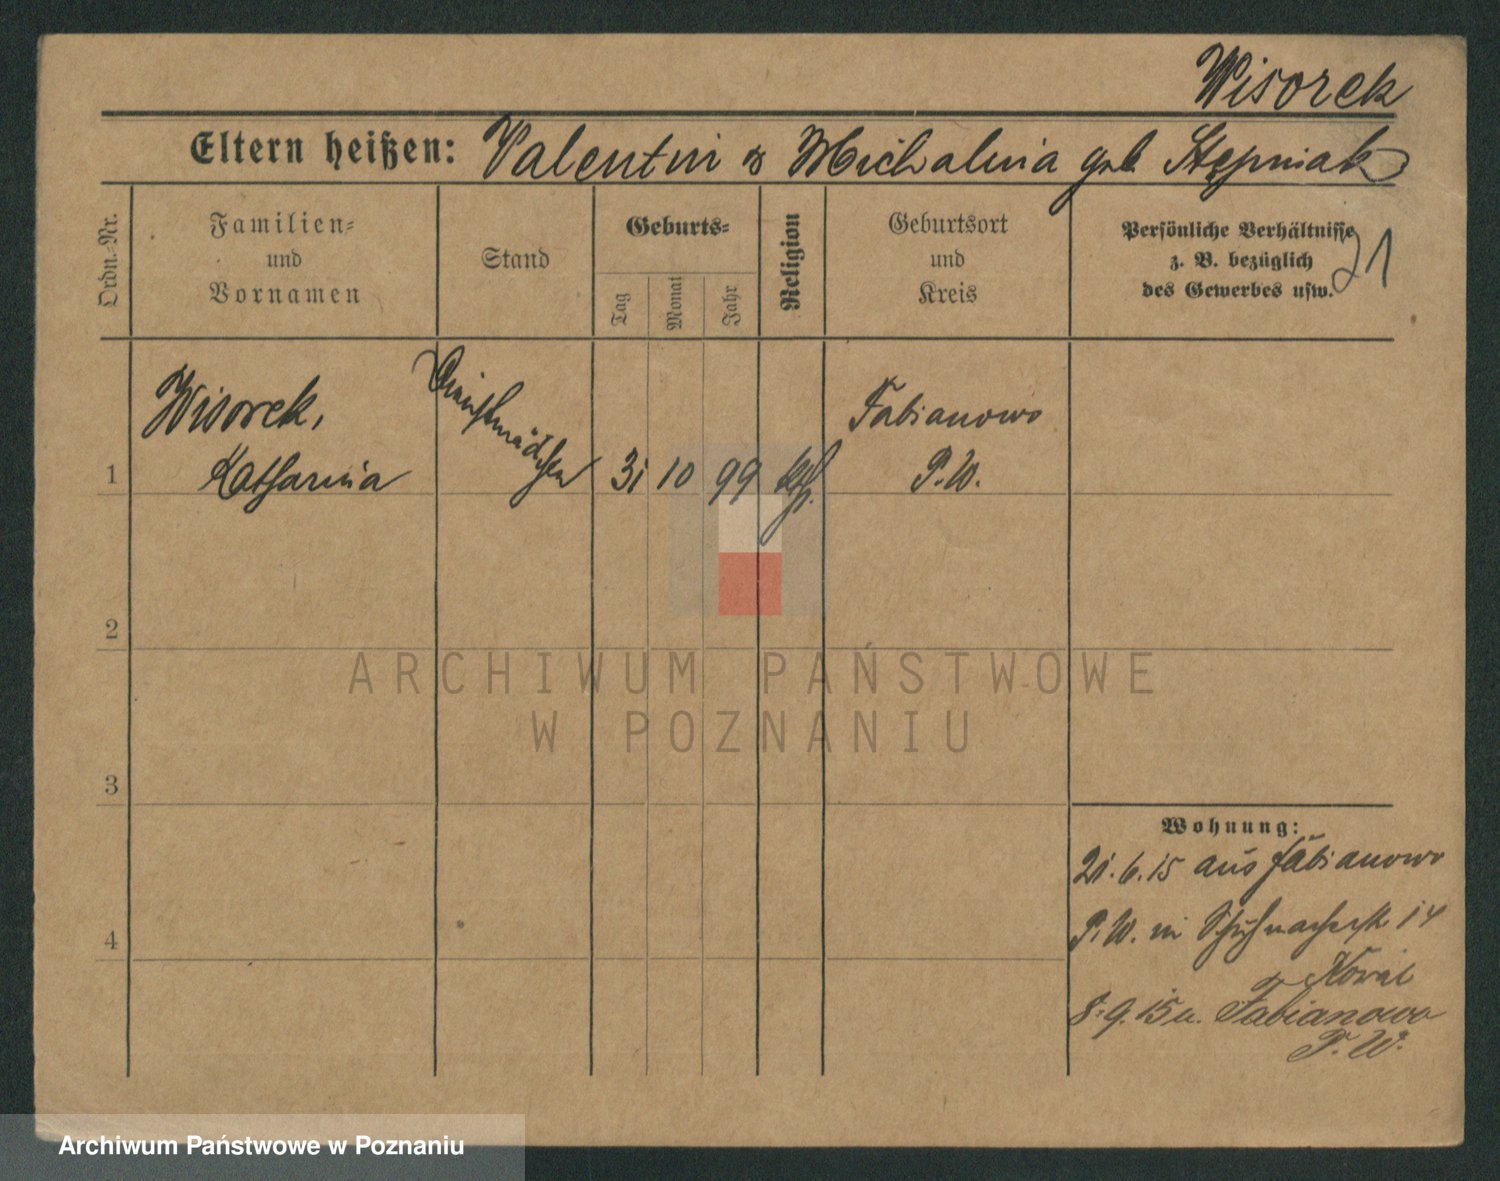 Wisorek
Eltern heißen: Valentin & Michalina geb. Stępniak
Ordn.-Nr.
Familien-
und
Vornamen
Stand
Geburts-
Tag
Monat
Jahr
Religion
Geburtsort
und
Kreis
Persönliche Verhältnisse
z. B. bezüglich
des Gewerbes usw.
21
1
Wisorek,
Katharina
Dienstmädchen
31 10 99 kth.
Fabianowo
P. W.
2
3
4
Wohnung:
21. 6. 15 aus Fabianowo
P. W. in Schuhmacherstr 14
8. 9. 15 n. Fabianowo
P. W.
ARCHIWUM PAŃSTWOWE
W POZNANIU
Archiwum Państwowe w Poznaniu